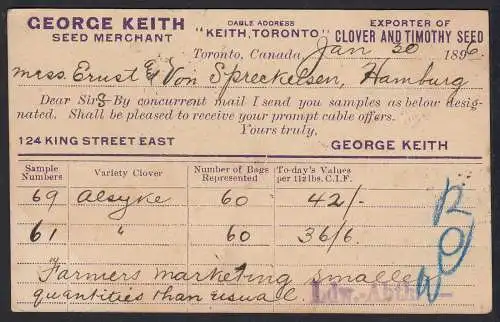 GEORGE KEITH
SEED MERCHANT
CABLE ADDRESS
"KEITH, TORONTO"
EXPORTER OF
CLOVER AND TIMOTHY SEED
Toronto, Canada, Jan 20 1896.
Mess. Ernst & Von Spreckelsen, Hamburg
Dear Sirs By concurrent mail I send you samples as below desig-
nated. Shall be pleased to receive your prompt cable offers.
Yours truly,
124 KING STREET EAST GEORGE KEITH
Sample Numbers Variety Clover Number of Bags Represented To-day's Values per 112 lbs. C.I.F.
69 Alsyke 60 42/-
61 " 60 36/6.
Farmers marketing smaller
quantities than usual.